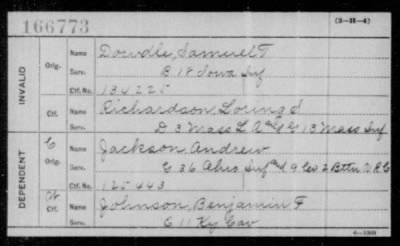 166773 (3-11-4)
INVALID
Orig. Name Dowdle, Samuel T
Serv. B 18 Iowa Inf
Ctf. No. 134225
Ctf. Name Richardson, Loring
Serv. D 3 Mass 13 Mass Inf
DEPENDENT
C Orig. Name Jackson Andrew
Serv. G 36 Ohio Inf and 9 Co 2 Battn V.R.C
Ctf. No. 125443
W Ctf. Name Johnson Benjamin F
Serv. C 11 Ky Cav